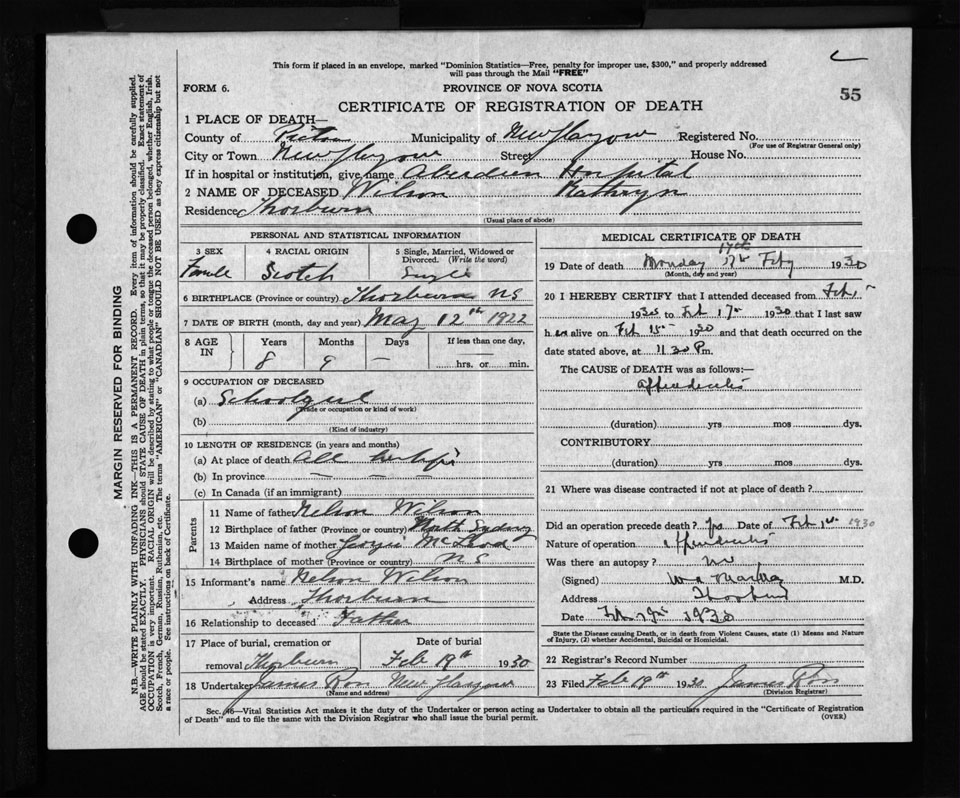 This form if placed in an envelope, marked "Dominion Statistics—Free, penalty for improper use, $300," and properly addressed
will pass through the Mail "FREE"
FORM 6. PROVINCE OF NOVA SCOTIA
55
CERTIFICATE OF REGISTRATION OF DEATH
1 PLACE OF DEATH—
County of Pictou Municipality of New Glasgow Registered No.
(For use of Registrar General only)
City or Town New Glasgow Street House No.
If in hospital or institution, give name Aberdeen Hospital
2 NAME OF DECEASED Wilson Kathryn
Residence Thorburn
(Usual place of abode)
PERSONAL AND STATISTICAL INFORMATION
3 SEX 4 RACIAL ORIGIN 5 Single, Married, Widowed or
Divorced. (Write the word)
Female Scotch Single
6 BIRTHPLACE (Province or country) Thorburn NS
7 DATE OF BIRTH (month, day and year) May 12th 1922
8 AGE IN Years Months Days If less than one day,
8 9 — hrs. or min.
9 OCCUPATION OF DECEASED
(a) Schoolgirl
(Trade or occupation or kind of work)
(b)
(Kind of industry)
10 LENGTH OF RESIDENCE (in years and months)
(a) At place of death All her life
(b) In province
(c) In Canada (if an immigrant)
Parents
11 Name of father Nelson Wilson
12 Birthplace of father (Province or country) North Sydney
13 Maiden name of mother Georgie McLeod
14 Birthplace of mother (Province or country) NS
15 Informant's name Nelson Wilson
Address Thorburn
16 Relationship to deceased Father
17 Place of burial, cremation or Date of burial
removal Thorburn Feb 19th 1930
18 Undertaker James Ross New Glasgow
(Name and address)
MEDICAL CERTIFICATE OF DEATH
17th
19 Date of death Monday 17th Feby 1930
(Month, day and year)
20 I HEREBY CERTIFY that I attended deceased from Feb 1st
1930 to Feb 17th 1930 that I last saw
her alive on Feb 15th 1930 and that death occurred on the
date stated above, at 11 30 P.m.
The CAUSE of DEATH was as follows:—
appendicitis
(duration) yrs mos dys.
CONTRIBUTORY
(duration) yrs mos dys.
21 Where was disease contracted if not at place of death?
Did an operation precede death? yes Date of Feb 1st 1930
Nature of operation appendicitis
Was there an autopsy? no
(Signed) M.D.
Address Thorburn
Date Feb 1930
State the Disease causing Death, or in death from Violent Causes, state (1) Means and Nature
of Injury, (2) whether Accidental, Suicidal or Homicidal.
22 Registrar's Record Number
23 Filed Feb 19th 1930 James Ross
(Division Registrar)
Sec. 16—Vital Statistics Act makes it the duty of the Undertaker or person acting as Undertaker to obtain all the particulars required in the "Certificate of Registration
of Death" and to file the same with the Division Registrar who shall issue the burial permit. (OVER)
MARGIN RESERVED FOR BINDING
N.B.—WRITE PLAINLY WITH UNFADING INK—THIS IS A PERMANENT RECORD. Every item of information should be carefully supplied.
AGE should be stated EXACTLY. PHYSICIANS should STATE CAUSE OF DEATH in plain terms, so that it may be properly classified. Exact statement of
OCCUPATION is very important. RACIAL ORIGIN will be described by stating to what people or tongue the deceased person belonged, whether English, Irish,
Scotch, French, German, Russian, Ruthenian, etc. The terms "AMERICAN" or "CANADIAN" SHOULD NOT BE USED as they express citizenship but not
a race or people. See instructions on back of Certificate.